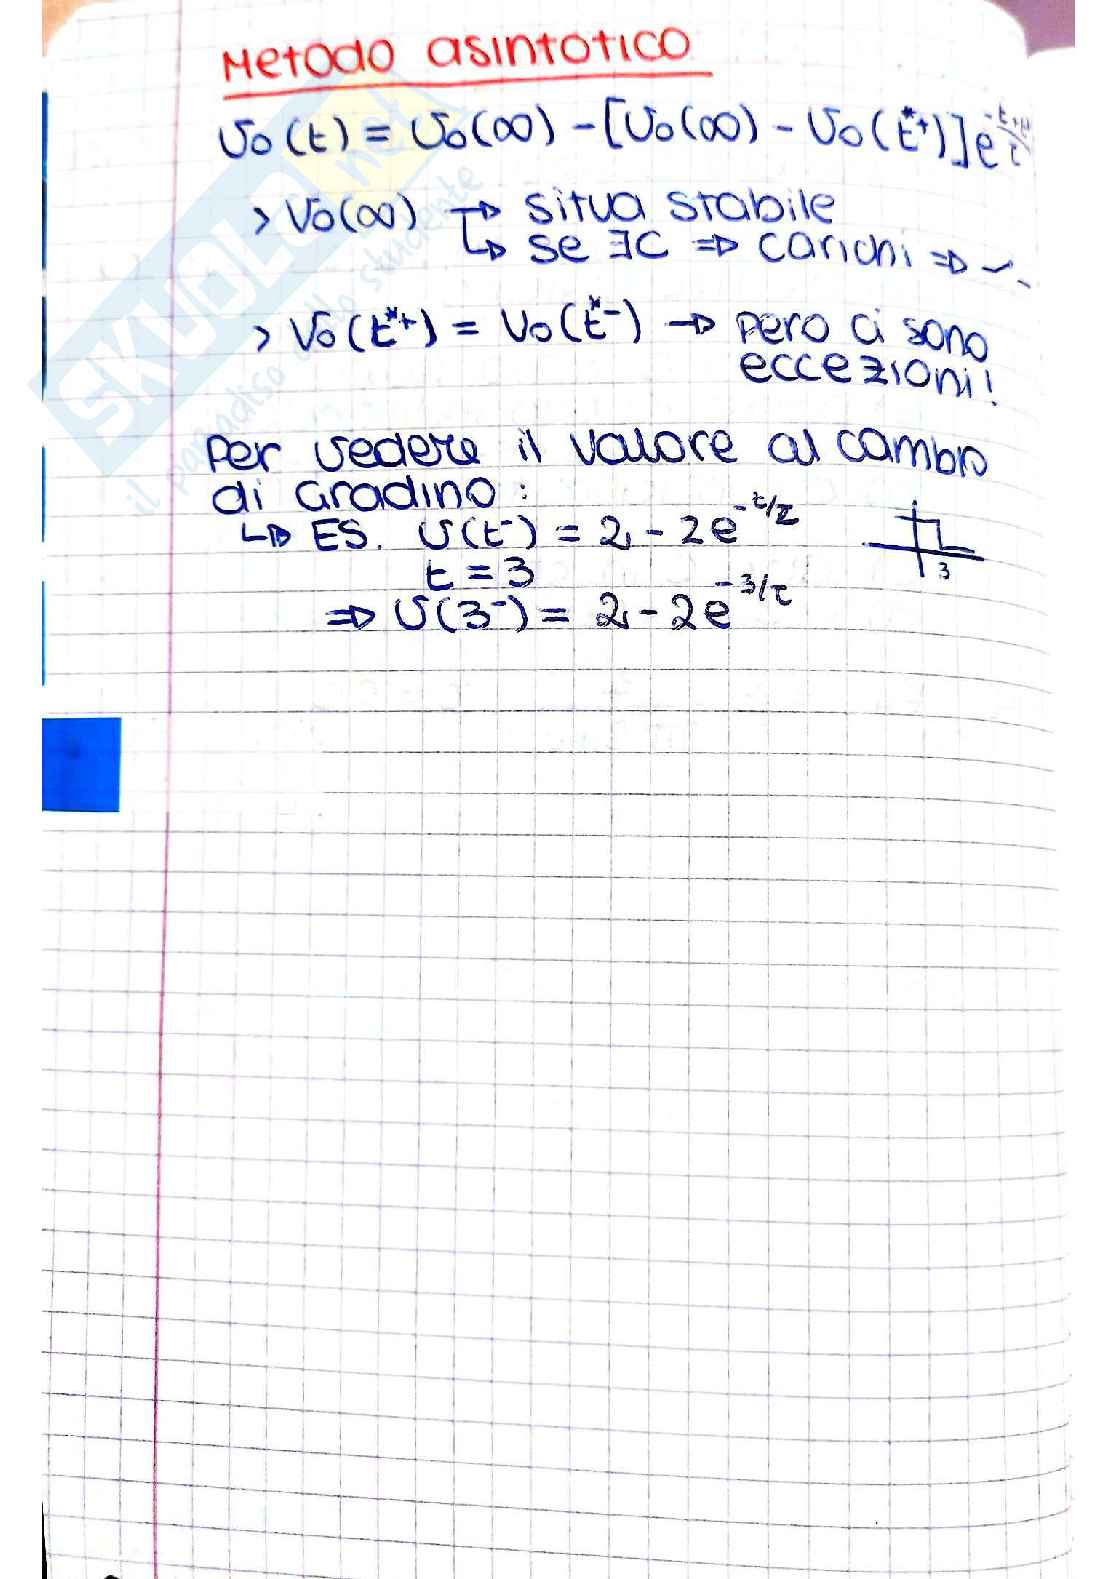 Metodo asintotico
Vo(t) = Vo(∞) - [Vo(∞) - Vo(t*+)] e
> Vo(∞) → situa stabile
↳ se ∃C ⇒ carichi ⇒
> Vo(t*+) = Vo(t*-) → pero ci sono
eccezioni!
Per vedere il valore al cambio
di Gradino:
↳ ES. V(t-) = 2 - 2e^-t/τ
t = 3
3
⇒ V(3-) = 2 - 2e^-3/τ
SKUOLA.net
il paradiso dello studente